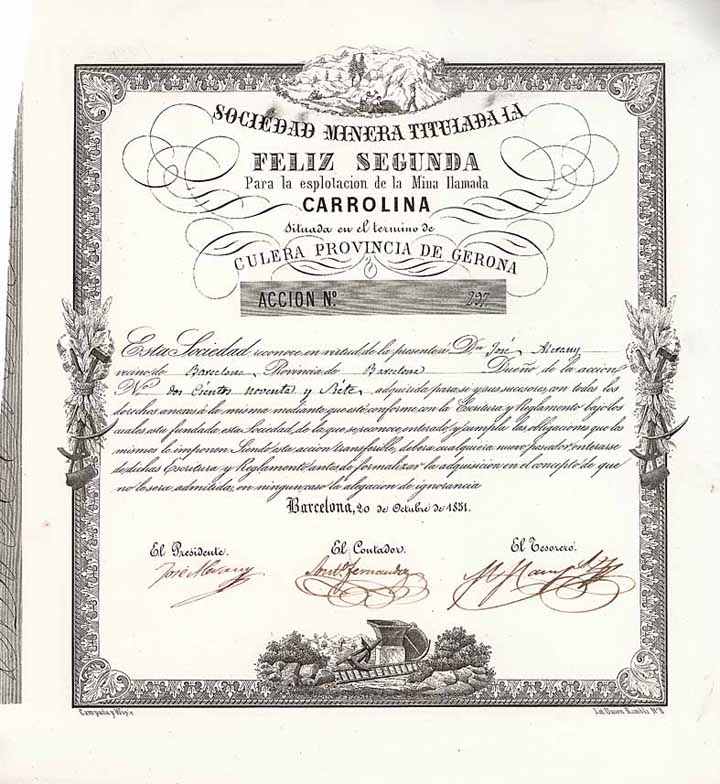 SOCIEDAD MINERA TITULADA LA
FELIZ SEGUNDA
Para la esplotacion de la Mina llamada
CARROLINA
Situada en el termino de
CULERA PROVINCIA DE GERONA
ACCION Nº 297
Esta Sociedad reconoce en virtud de la presente á Don José
vecino de Barcelona Provincia de Barcelona Dueño de la accion
Nº dos Cientos noventa y Siete, adquirida para si y sus sucesores, con todos los
derechos anexos á la misma mediante que esté conforme con la Escritura y Reglamento bajo los
cuales esta fundada esta Sociedad, de la que se reconoce enterado, y cumpla las obligaciones que los
mismos le imponen. Siendo esta accion transferible, deberá cualquiera nuevo poseedor enterarse
de dichas Escritura y Reglamento antes de formalizar la adquisicion en el concepto de que
no le sera admitida en ningun caso la alegacion de ignorancia
Barcelona, 20 de Octubre de 1851.
El Presidente. El Contador. El Tesorero.
José Antº Fernandez